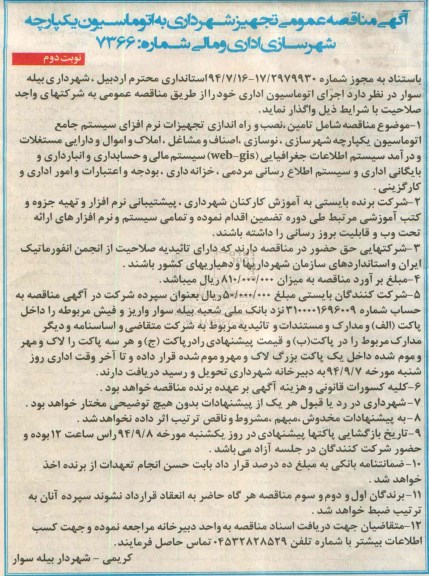 آگهی مناقصه عمومی تجهیز شهرداری به اتوماسیون یکپارچه
شهرسازی اداری و مالی شماره: ۷۳۶۶
نوبت دوم
باستناد به مجوز شماره ۱۷/۲۹۷۹۹۳۰-۹۴/۷/۱۶ استانداری محترم اردبیل ، شهرداری بیله
سوار در نظر دارد اجرای اتوماسیون اداری خود را از طریق مناقصه عمومی به شرکتهای واجد
صلاحیت با شرایط ذیل واگذار نماید.
۱-موضوع مناقصه شامل تامین،نصب و راه اندازی تجهیزات نرم افزای سیستم جامع
اتوماسیون یکپارچه شهرسازی ، نوسازی ،اصناف و مشاغل ، املاک و اموال و دارایی مستغلات
و درآمد سیستم اطلاعات جغرافیایی (web-gis) سیستم مالی و حسابداری و انبارداری و
بایگانی اداری و سیستم اطلاع رسانی مردمی ، خزانه داری ، بودجه و اعتبارات و امور اداری و
کارگزینی .
۲-شرکت برنده بایستی به آموزش کارکنان شهرداری ، پیشتیبانی نرم افزار و تهیه جزوه و
کتب آموزشی مرتبط طی دوره تضمین اقدام نموده و تمامی سیستم و نرم افزار های ارائه
تحت وب و قابلیت بروز رسانی را داشته باشند.
۳-شرکتهایی حق حضور در مناقصه دارند که دارای تائیدیه صلاحیت از انجمن انفورماتیک
ایران و استانداردهای سازمان شهرداریها و دهیاریهای کشور باشند .
۴-مبلغ بر آورد مناقصه به میزان ۸۱۰/۰۰۰/۰۰۰ ریال میباشد.
۵-شرکت کنندگان بایستی مبلغ ۵۰/۰۰۰/۰۰۰ ریال بعنوان سپرده شرکت در آگهی مناقصه به
حساب شماره ۳۱۰۰۰۰۱۶۹۶۰۰۹ نزد بانک ملی شعبه بیله سوار واریز و فیش مربوطه را داخل
پاکت (الف) و مدارک و مستندات و تائیدیه مربوط به شرکت متقاضی و اساسنامه و دیگر
مدارک مربوط را در پاکت(ب) و قیمت پیشنهادی رادرپاکت (ج) و هر سه پاکت را لاک و مهر
و موم شده داخل یک پاکت بزرگ لاک و مهر و موم شده قرار داده و تا آخر وقت اداری روز
شنبه مورخه ۹۴/۹/۷ به دبیرخانه شهرداری تحویل و رسید دریافت دارند.
۶-کلیه کسورات قانونی و هزینه آگهی بر عهده برنده مناقصه خواهد بود .
۷-شهرداری در رد یا قبول هر یک از پیشنهادات بدون هیچ توضیحی مختار خواهد بود .
۸-به پیشنهادات مخدوش،مبهم ،مشروط و ناقص ترتیب اثر داده نخواهد شد .
۹-تاریخ بازگشایی پاکتها پیشنهادی در روز یکشنبه مورخه ۹۴/۹/۸ راس ساعت ۱۲ بوده و
حضور شرکت کنندگان در جلسه آزاد می باشد .
۱۰-ضمانتنامه بانکی به مبلغ ده درصد قرار داد بابت حسن انجام تعهدات از برنده اخذ
خواهد شد .
۱۱-برندگان اول و دوم و سوم مناقصه هر گاه حاضر به انعقاد قرارداد نشوند سپرده آنان به
ترتیب ضبط خواهد شد .
۱۲-متقاضیان جهت دریافت اسناد مناقصه به واحد دبیرخانه مراجعه نموده و جهت کسب
اطلاعات بیشتر با شماره تلفن ۰۴۵۳۲۸۲۸۵۲۹ تماس حاصل فرمایند.
کریمی - شهردار بیله سوار